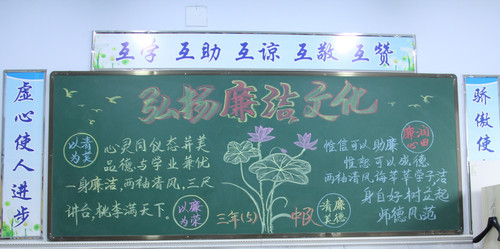 互学 互助 互谅 互敬 互赞
虚心使人进步
骄傲使
弘扬廉洁文化
以清为美
心灵同仪态并美
品德与学业兼优
一身廉洁,两袖清风,三尺
讲台,桃李满天下。
以廉为荣
三年(5)
中队
清廉美德
惟信可以助廉
惟恕可以成德
两袖清风诲莘莘学子洁
身自好树立起
师德风范
廉润心田